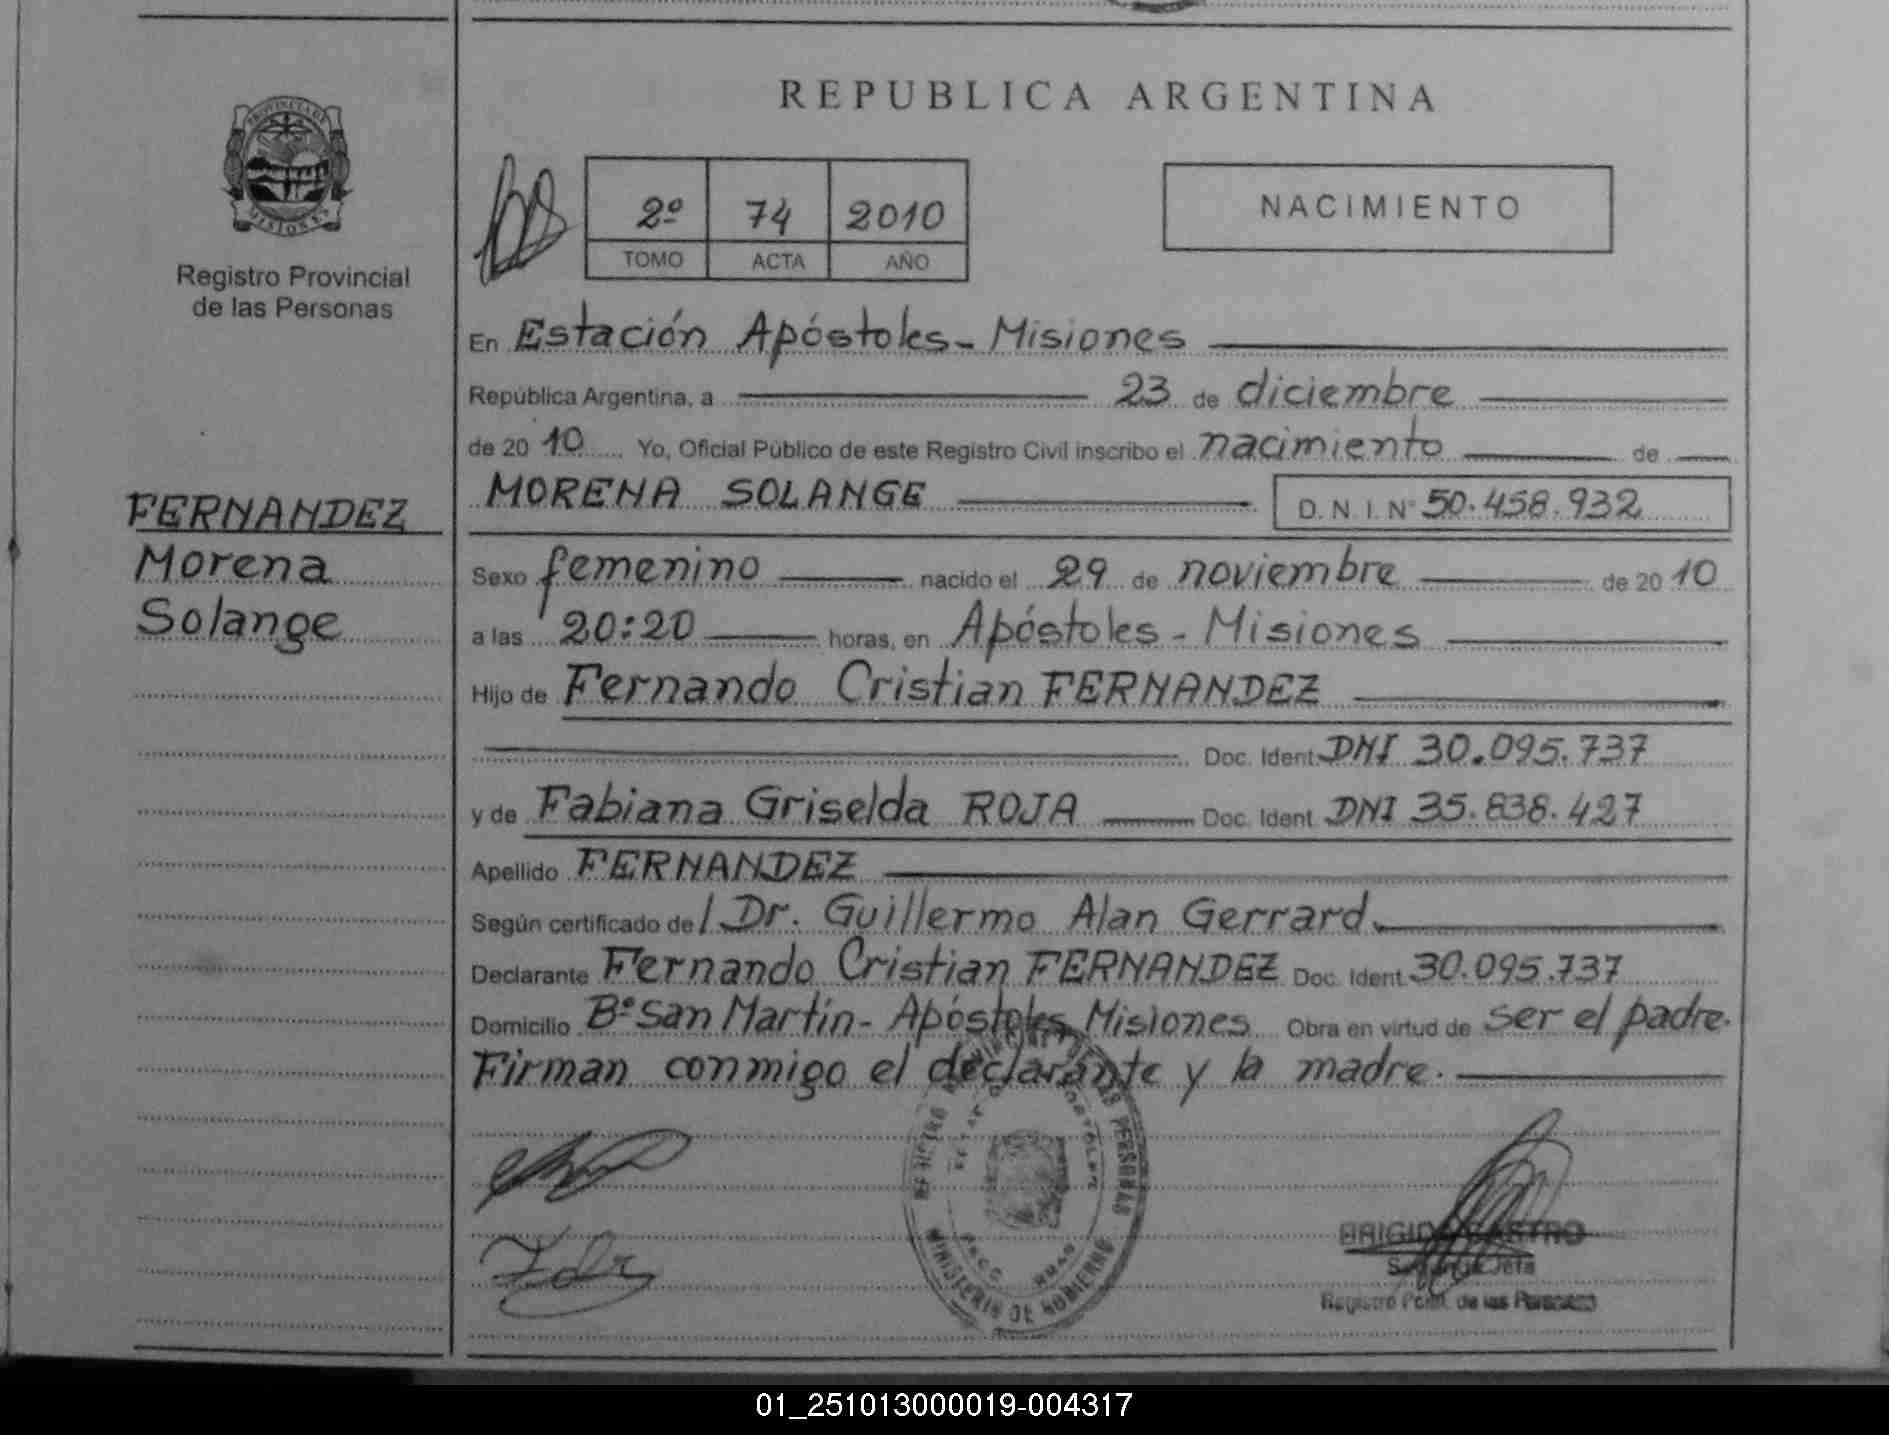 REPUBLICA ARGENTINA
PROVINCIA DE
MISIONES
Registro Provincial
de las Personas
2º 74 2010
TOMO ACTA AÑO
NACIMIENTO
En Estación Apóstoles - Misiones
República Argentina, a 23 de diciembre
de 20 10 Yo, Oficial Público de este Registro Civil inscribo el nacimiento de
FERNANDEZ
Morena
Solange
MORENA SOLANGE D. N. I. Nº 50.458.932
Sexo femenino nacido el 29 de noviembre de 20 10
a las 20:20 horas, en Apóstoles - Misiones
Hijo de Fernando Cristian FERNANDEZ
Doc. Ident. DNI 30.095.737
y de Fabiana Griselda ROJA Doc. Ident. DNI 35.838.427
Apellido FERNANDEZ
Según certificado de l Dr. Guillermo Alan Gerrard.
Declarante Fernando Cristian FERNANDEZ Doc. Ident. 30.095.737
Domicilio Bº San Martín - Apóstoles Misiones Obra en virtud de ser el padre.
Firman conmigo el declarante y la madre.
REGISTRO DE LAS PERSONAS
MINISTERIO DE GOBIERNO
BRIGIDA CASTRO
Jefa
Registro de las Personas
01_251013000019-004317